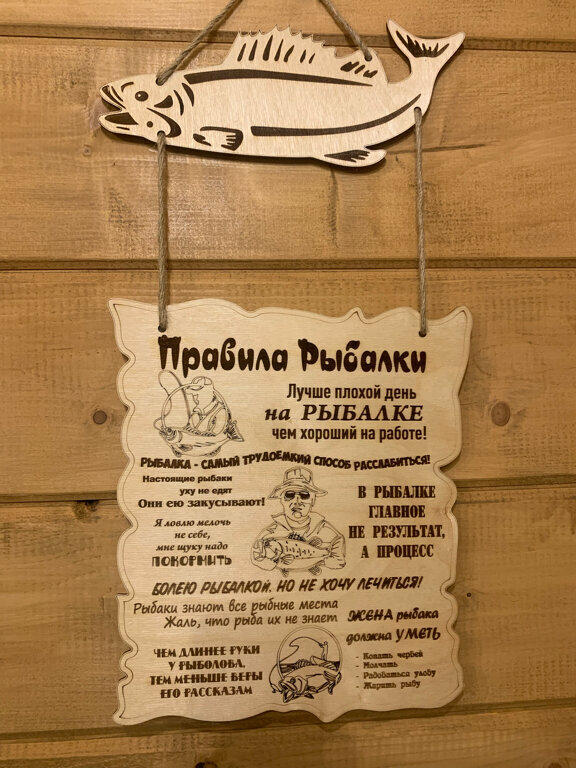 Правила Рыбалки
Лучше плохой день
на РЫБАЛКЕ
чем хороший на работе!
РЫБАЛКА - САМЫЙ ТРУДОЕМКИЙ СПОСОБ РАССЛАБИТЬСЯ!
Настоящие рыбаки
уху не едят
Они ею закусывают!
Я ловлю мелочь
не себе,
мне щуку надо
ПОКОРМИТЬ
В РЫБАЛКЕ
ГЛАВНОЕ
НЕ РЕЗУЛЬТАТ,
А ПРОЦЕСС
БОЛЕЮ РЫБАЛКОЙ. НО НЕ ХОЧУ ЛЕЧИТЬСЯ!
Рыбаки знают все рыбные места
Жаль, что рыба их не знает
ЖЕНА рыбака
должна УМЕТЬ
- Копать червей
- Молчать
- Радоваться улову
- Жарить рыбу
ЧЕМ ДЛИННЕЕ РУКИ
У РЫБОЛОВА,
ТЕМ МЕНЬШЕ ВЕРЫ
ЕГО РАССКАЗАМ